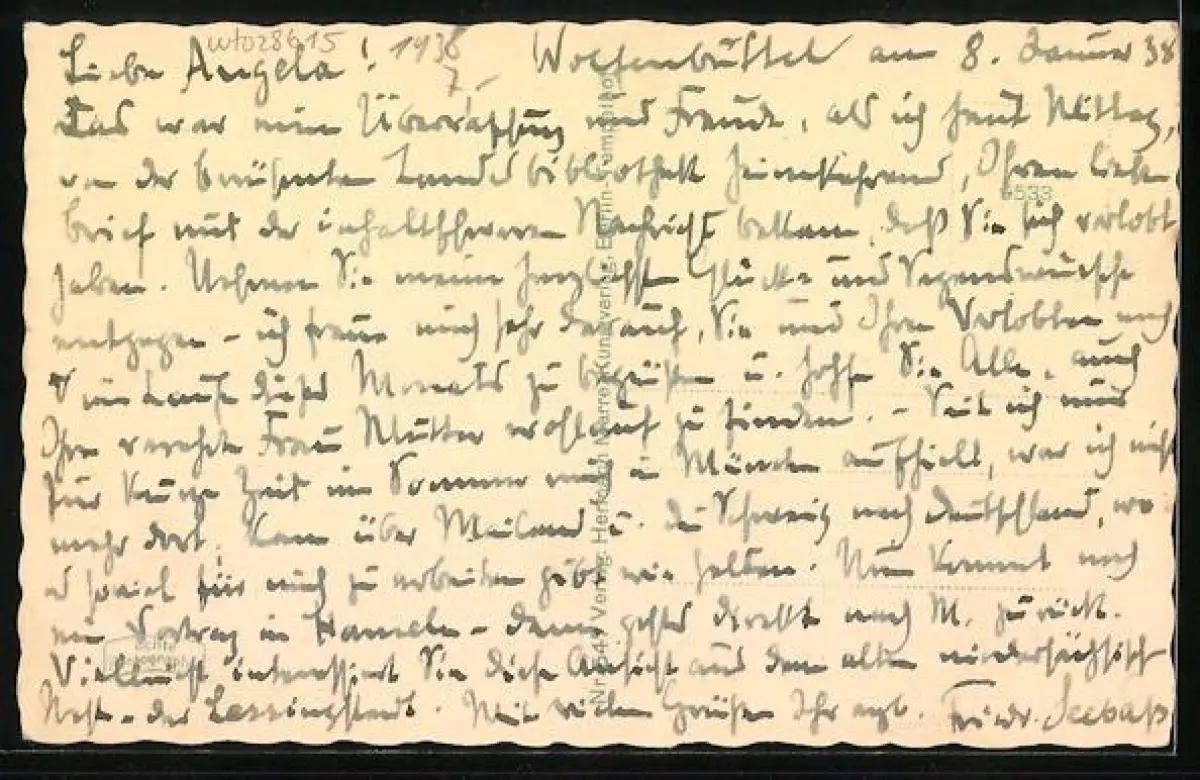 wto28615
Liebe Angela! 1938 Wolfenbüttel am 8. Januar 38
7.
Das war eine Überraschung und Freude, als ich heut Mittag,
von der berühmten Landesbibliothek heimkehrend, Ihren lieben
Brief mit der inhaltsschweren Nachricht bekam, daß Sie sich verlobt
haben. Nehmen Sie meine herzlichsten Glück- und Segenswünsche
entgegen – ich freue mich sehr darauf, Sie und Ihren Verlobten noch
im Laufe dieses Monats zu begrüßen u. hoffe Sie Alle, auch
Ihre verehrte Frau Mutter wohlauf zu finden. – Seit ich mich
für kurze Zeit im Sommer in München aufhielt, war ich nicht
mehr dort, kam über Mailand u. die Schweiz nach Deutschland, wo
es soviel für mich zu arbeiten gibt wie selten. Nun kommt noch
ein Vortrag in Hameln – dann gehts direkt nach M. zurück.
Vielleicht interessiert Sie diese Ansicht aus dem alten niedersächsisch
Nest – der Lessingstadt. Mit vielen Grüßen Ihr ergb. Friedr. Seebaß
6533
Verlag Hermann Kunstverlag, Berlin-Tempelhof